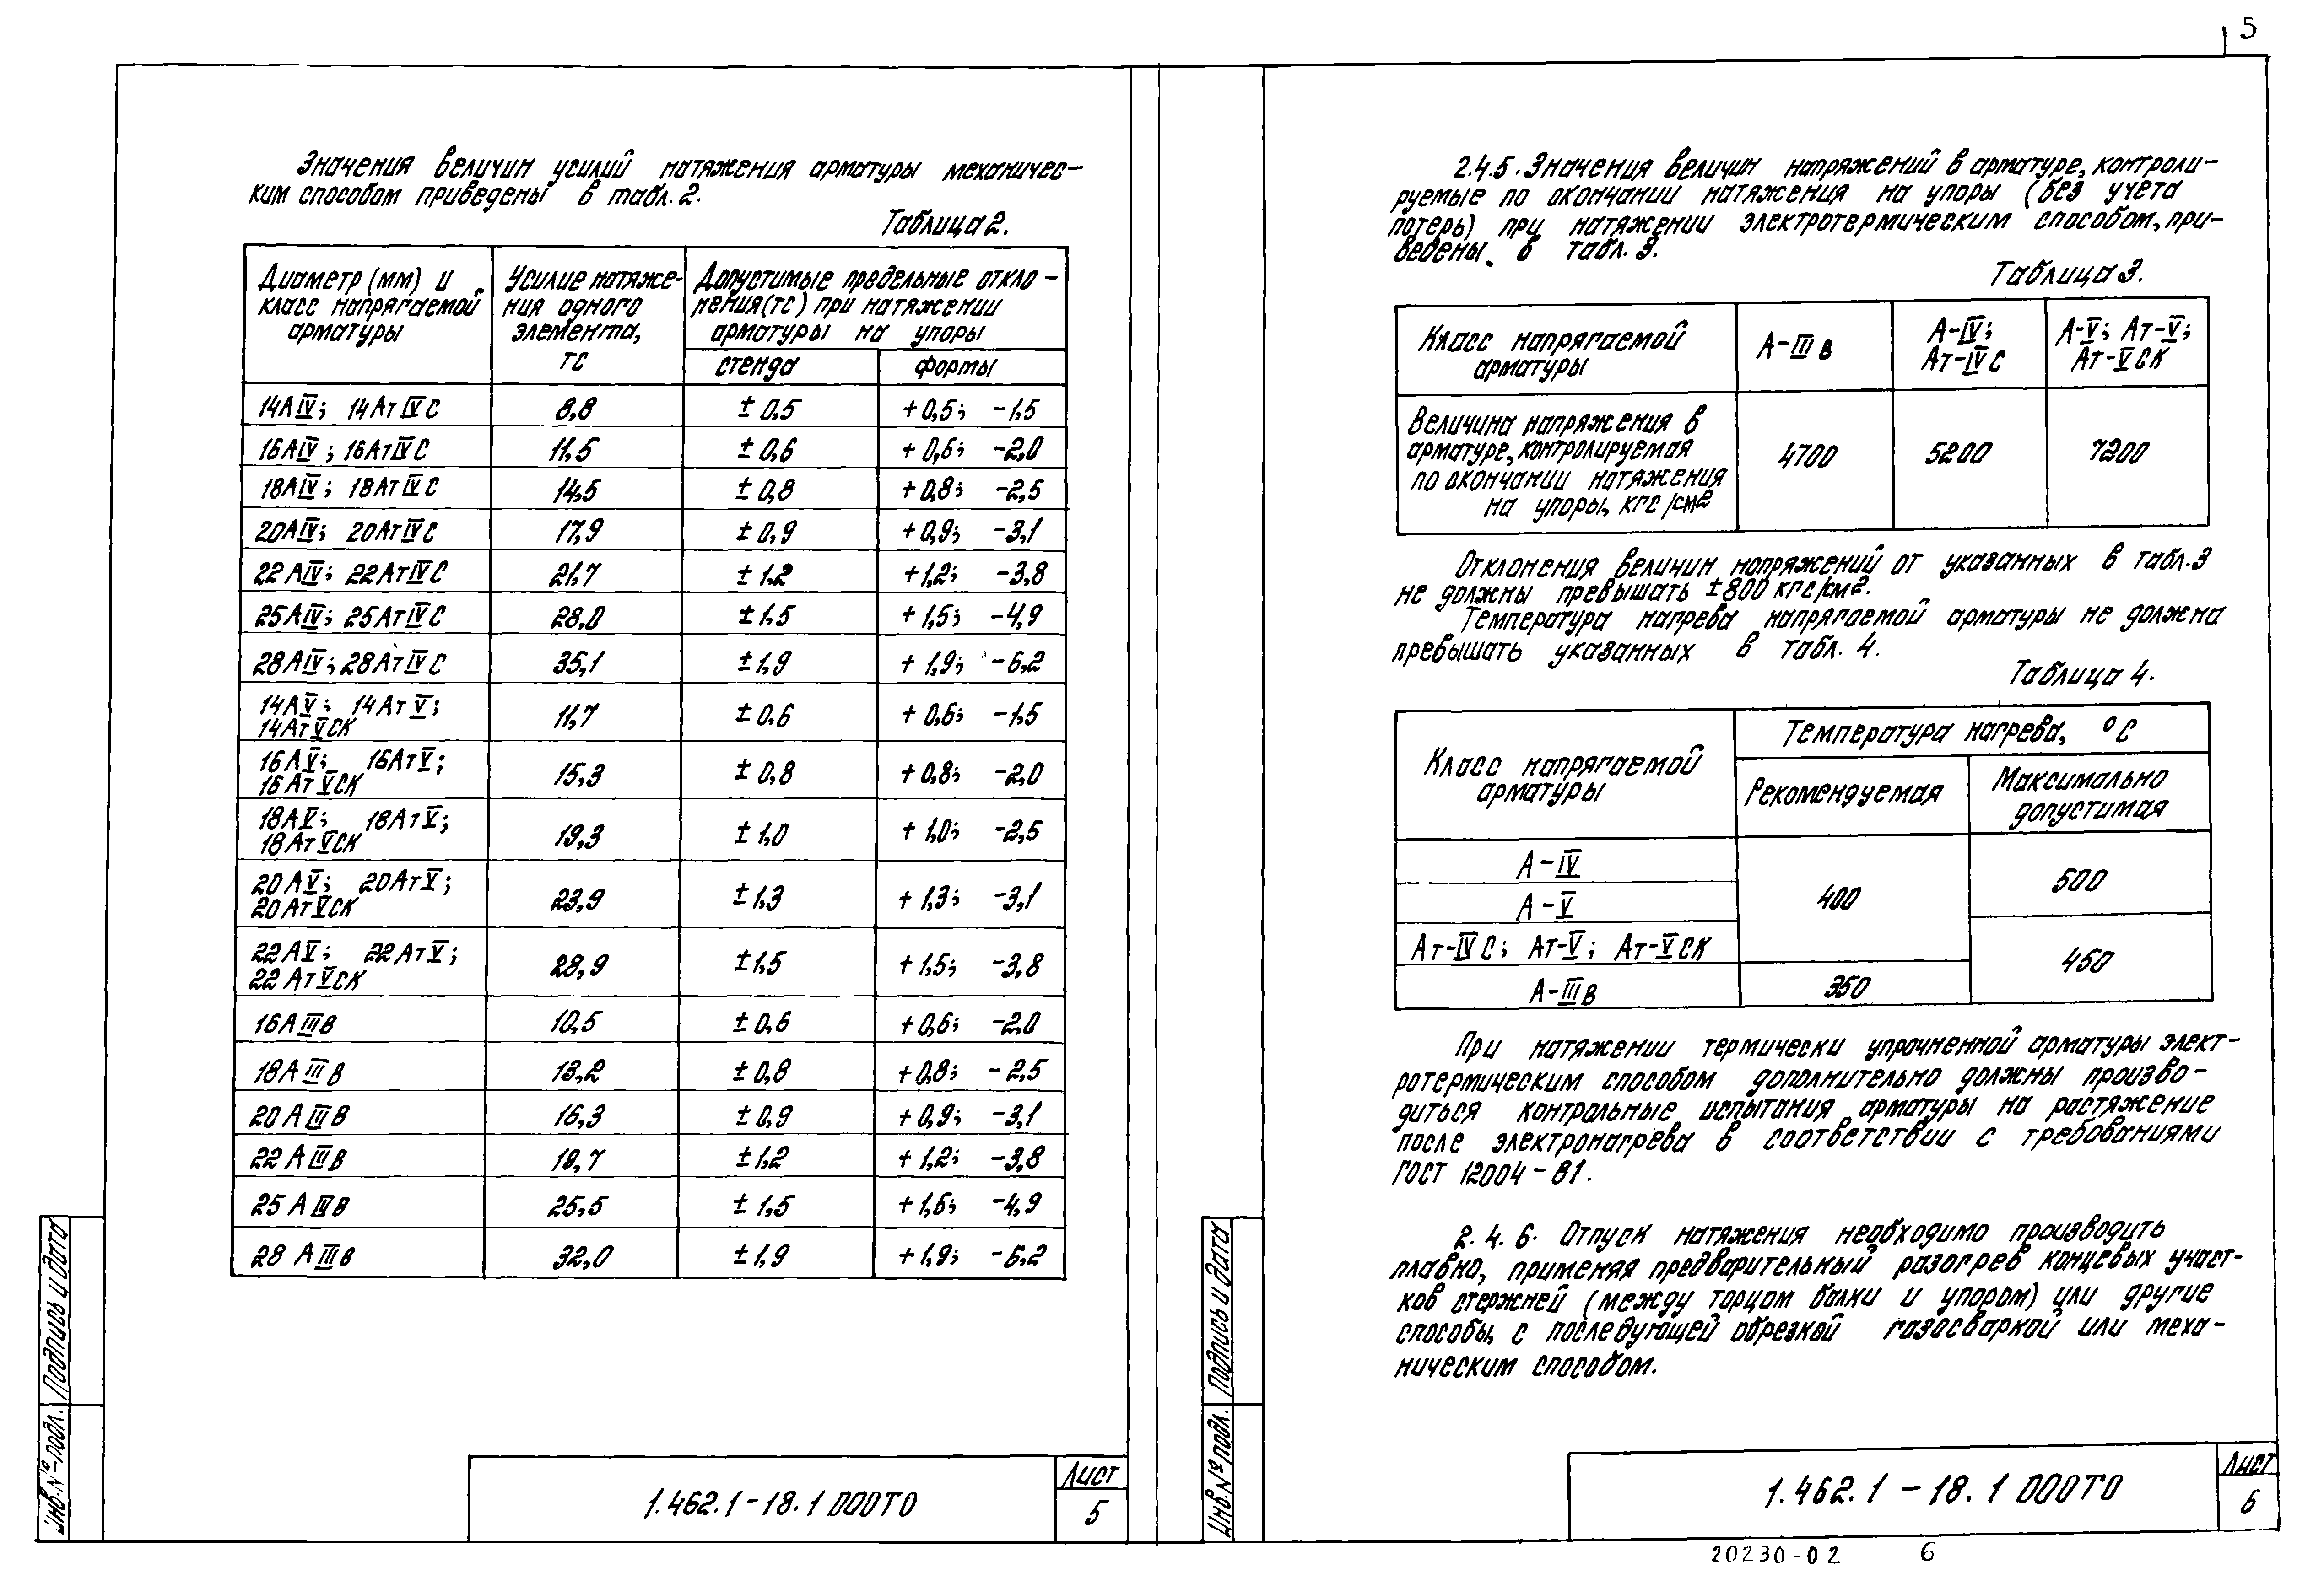 5
Значения величин усилий натяжения арматуры механичес-
ким способом приведены в табл. 2.
Таблица 2.
Диаметр (мм) и класс напрягаемой арматуры
Усилие натяже-ния одного элемента, тс
Допустимые предельные откло-нения (тс) при натяжении арматуры на упоры
стенда формы
14АIV; 14АтIVС 8,8 ±0,5 +0,5; -1,5
16АIV; 16АтIVС 11,5 ±0,6 +0,6; -2,0
18АIV; 18АтIVС 14,5 ±0,8 +0,8; -2,5
20АIV; 20АтIVС 17,9 ±0,9 +0,9; -3,1
22АIV; 22АтIVС 21,7 ±1,2 +1,2; -3,8
25АIV; 25АтIVС 28,0 ±1,5 +1,5; -4,9
28АIV; 28АтIVС 35,1 ±1,9 +1,9; -6,2
14АV; 14АтV;
14АтVСК 11,7 ±0,6 +0,6; -1,5
16АV; 16АтV;
16АтVСК 15,3 ±0,8 +0,8; -2,0
18АV; 18АтV;
18АтVСК 19,3 ±1,0 +1,0; -2,5
20АV; 20АтV;
20АтVСК 23,9 ±1,3 +1,3; -3,1
22АV; 22АтV;
22АтVСК 28,9 ±1,5 +1,5; -3,8
16АIIIв 10,5 ±0,6 +0,6; -2,0
18АIIIв 13,2 ±0,8 +0,8; -2,5
20АIIIв 16,3 ±0,9 +0,9; -3,1
22АIIIв 19,7 ±1,2 +1,2; -3,8
25АIIIв 25,5 ±1,5 +1,5; -4,9
28АIIIв 32,0 ±1,9 +1,9; -6,2
Инв. № подл. Подпись и дата
1.462.1-18.1 D00ТО
Лист
5
2.4.5. Значения величин напряжений в арматуре, контроли-
руемые по окончании натяжения на упоры (без учета
потерь) при натяжении электротермическим способом, при-
ведены в табл. 3.
Таблица 3.
Класс напрягаемой арматуры
А-IIIв
А-IV; Ат-IVС
А-V; Ат-V; Ат-VСК
Величина напряжения в
арматуре, контролируемая
по окончании натяжения
на упоры, кгс/см2
4700 5200 7200
Отклонения величин напряжений от указанных в табл. 3
не должны превышать ±800 кгс/см2.
Температура нагрева напрягаемой арматуры не должна
превышать указанных в табл. 4.
Таблица 4.
Класс напрягаемой арматуры
Температура нагрева, °С
Рекомендуемая
Максимально допустимая
А-IV
А-V
Ат-IVС; Ат-V; Ат-VСК
А-IIIв
400
350
500
450
При натяжении термически упрочненной арматуры элект-
ротермическим способом дополнительно должны произво-
диться контрольные испытания арматуры на растяжение
после электронагрева в соответствии с требованиями
ГОСТ 12004-81.
2.4.6. Отпуск натяжения необходимо производить
плавно, применяя предварительный разогрев концевых участ-
ков стержней (между торцом балки и упором) или другие
способы, с последующей обрезкой газосваркой или меха-
ническим способом.
Инв. № подл. Подпись и дата
1.462.1-18.1 D00ТО
Лист
6
20230-02 6